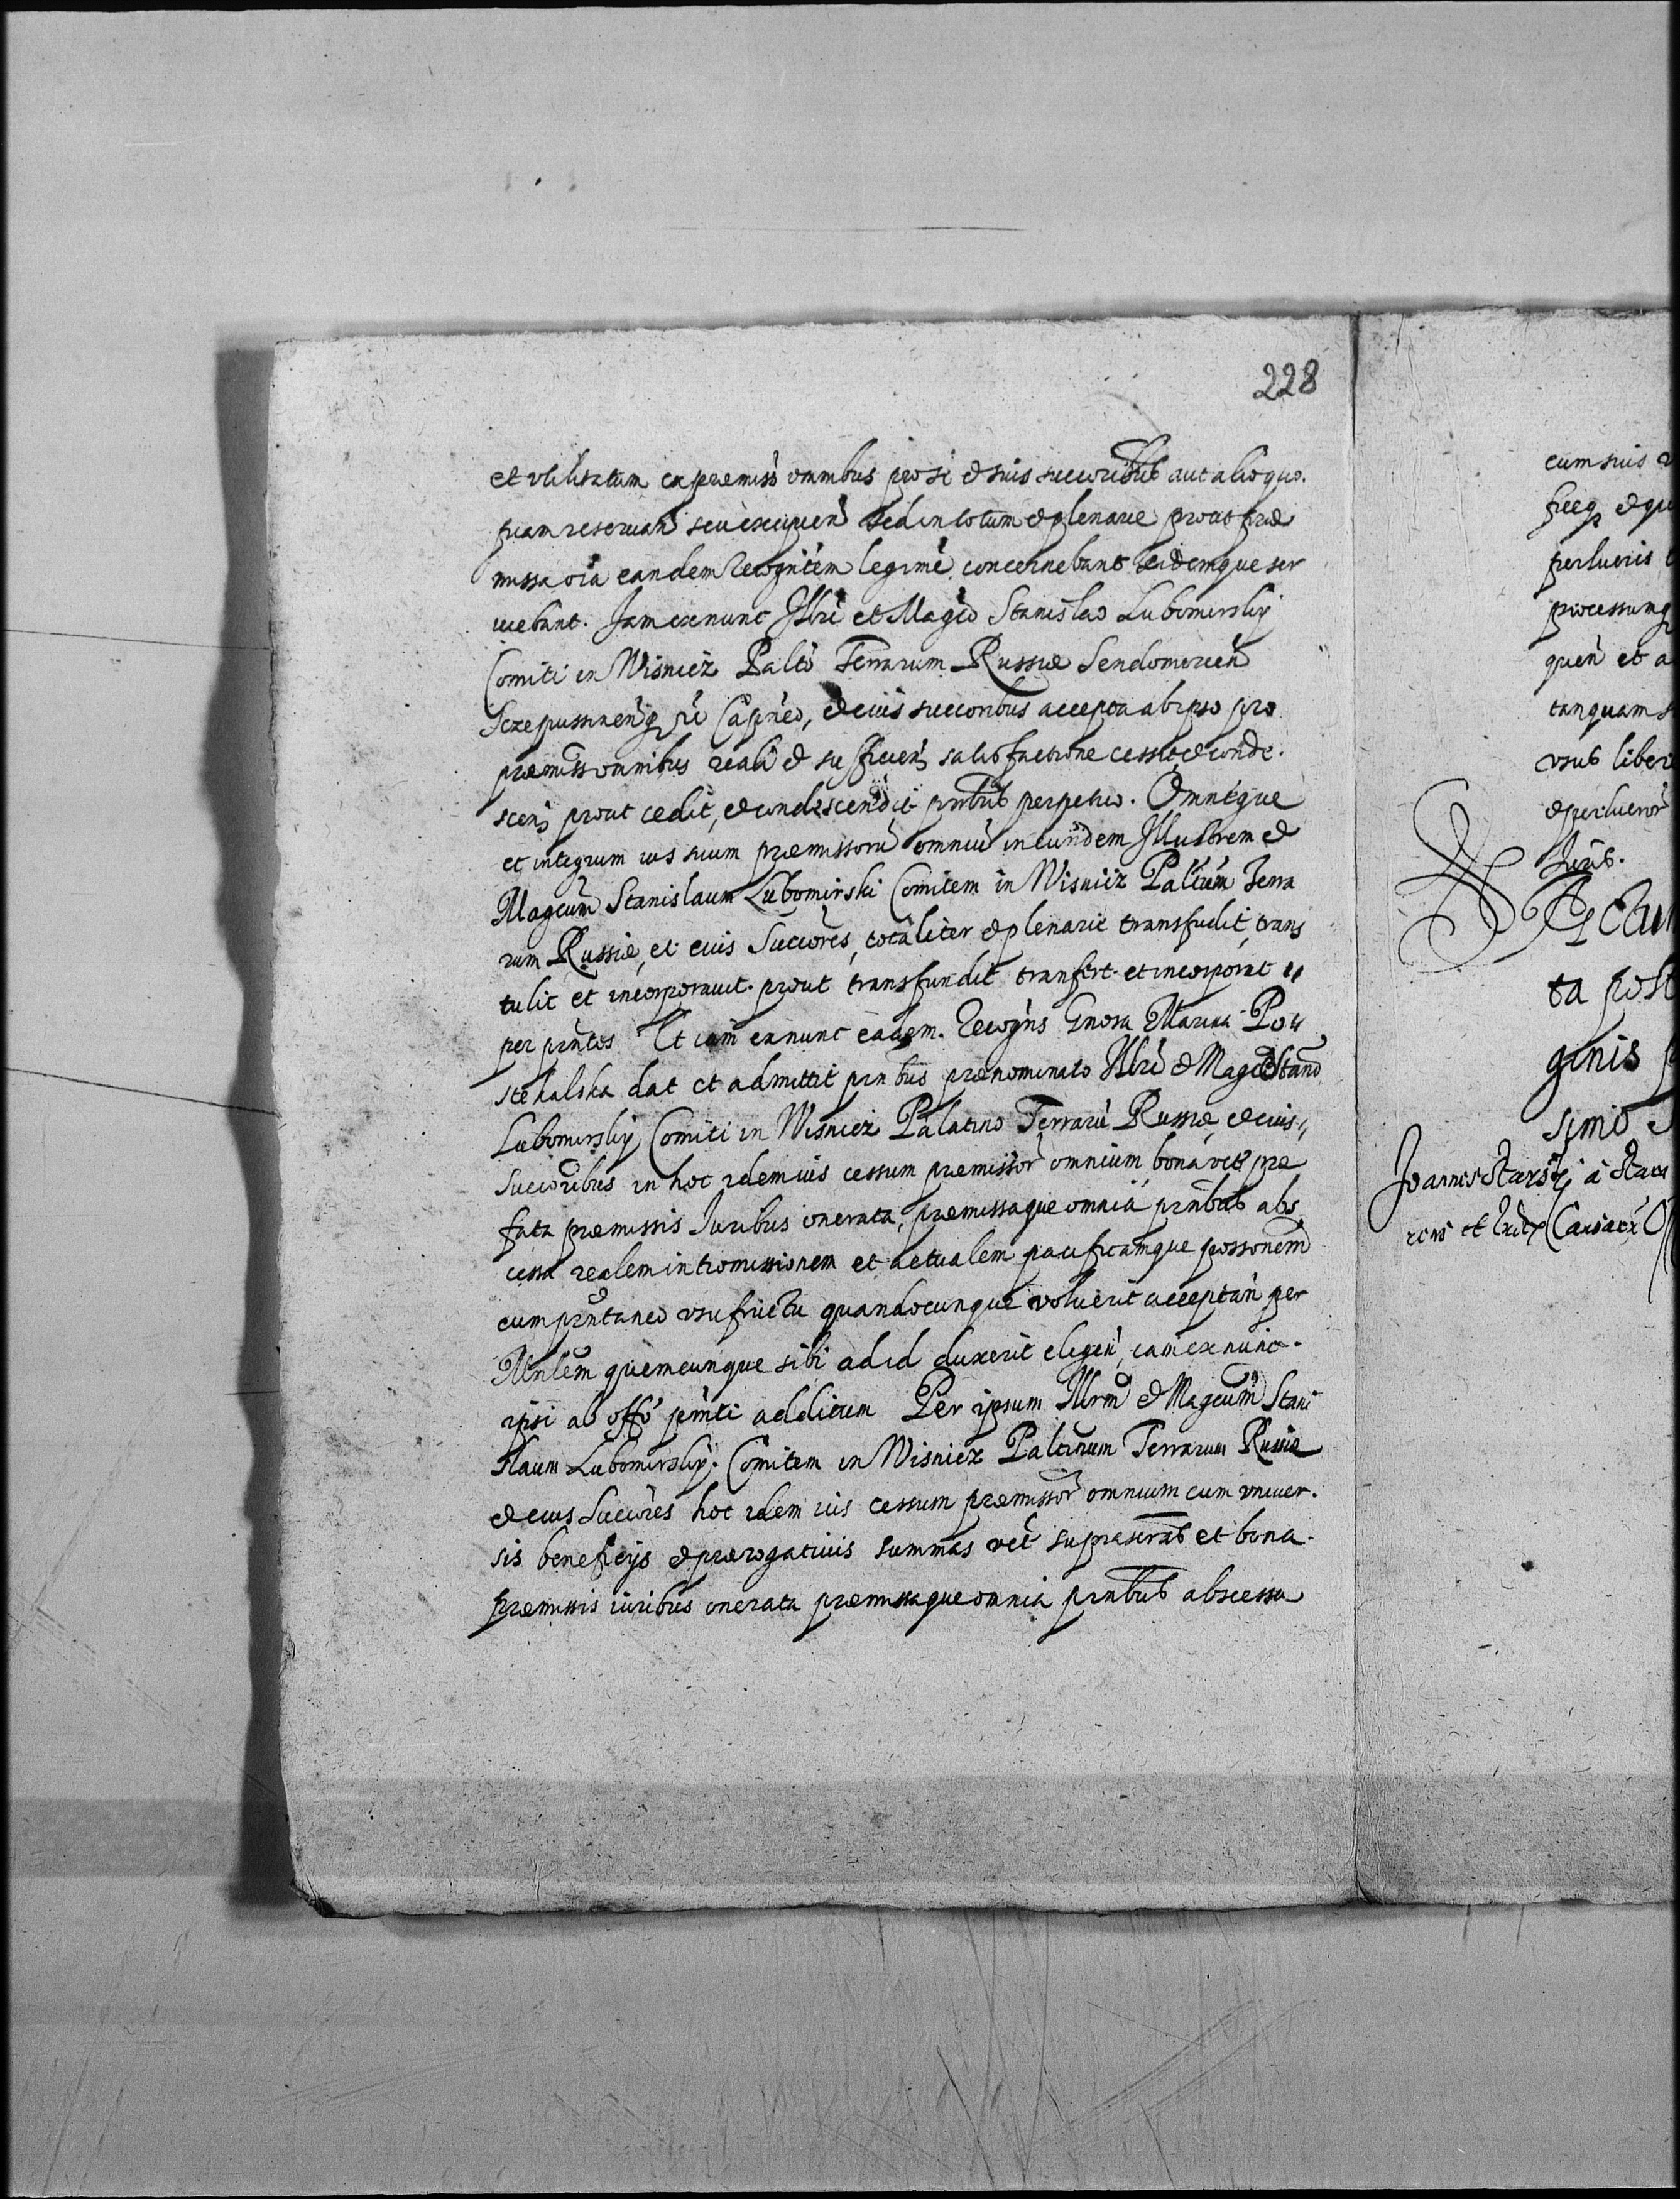 228
et utilitatum ex praemiss omnibus pro se et suis succoribus aut alio quo.
piam reservan seu excipien sed in totum et plenarie prout prae
missa oia eandem Recognitem legitime concernebant eidemque ser
viebant. Iam exnunc Illri et Magco Stanislao Lubomirskij
Comiti in Wisnicz Palto Terrarum Russiae Sendomirien
Scepusinenq Capneo, et eius succoribus accepta ab ipso pro
praemiss omnibus reali et sufficien satisfactione cessit et conde.
scen prout cedit, et condescendit pntibus perpetuo. Omneque
et integrum ius suum praemissoru omniu in eundem Illustrem et
Magcum Stanislaum Lubomirski Comitem in Wisnicz Paltum Terra
rum Russiae, et eius Succores, totaliter et plenarie transfudit, trans
tulit et incorporavit. prout transfundit tranfert et incorporat
per pntes Et iam exnunc eadem Recogns Gnosa Marina Po
stekalska dat et admittit pntibus praenominato Illri et Magco Stano
Lubomirskij Comiti in Wisnicz Palatino Terraru Russiae, et eius
Succoribus in hoc idem ius cessum praemissor omnium, bona vero prae
fata praemissis Iuribus onerata, praemissaque omnia pntibus abs
cessa realem intromissionem et actualem pacificamque possonem
cum pntaneo usufructu quandocunque voluerit acceptan per
Mnlem quemcunque sibi ad id duxerit eligen, iam exnunc.
ipsi ab offo pnti additum Per ipsum Illrm et Magcum Stani
slaum Lubomirskij. Comitem in Wisnicz Paltinum Terrarum Russiae
et eius Succores hoc idem ius cessum praemissor omnium cum univer.
sis beneficijs et praerogativis summas vero suprascras et bona.
praemissis iuribus onerata praemissaque omnia pntibus abscessa
cum suis
perlucris
processumq
quen et a
tanquam s
usus liber
et perlucror
Iuris.
Actum
ta post
ginis
simo
Joannes Starski à Star